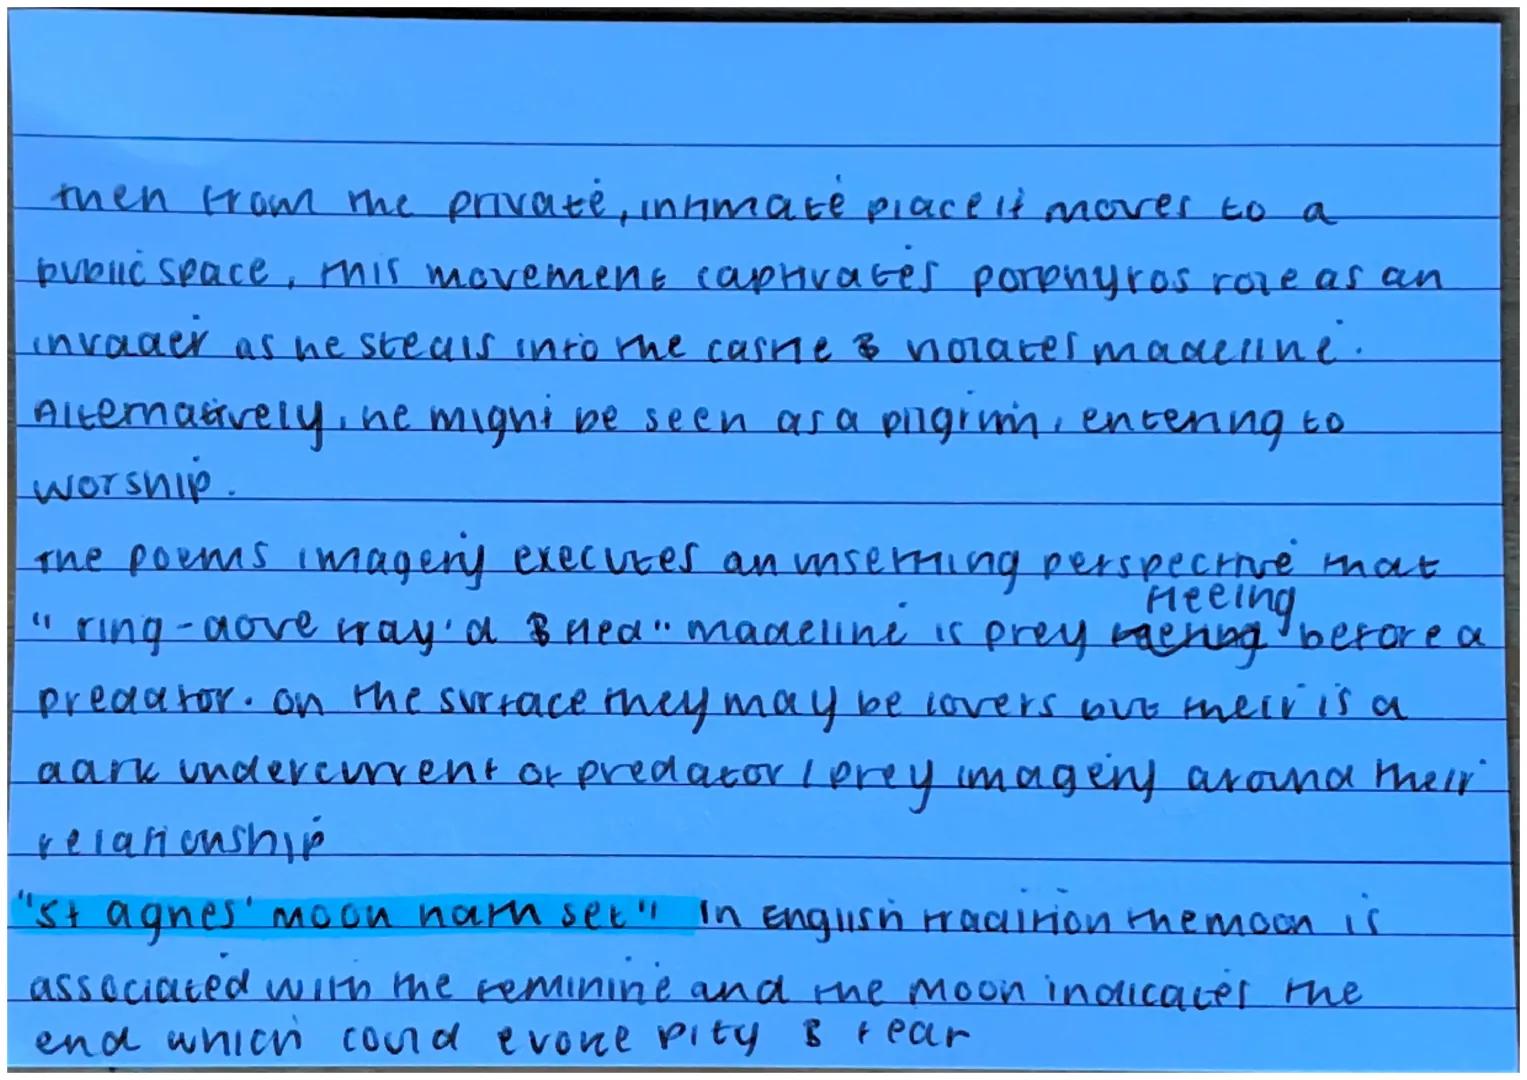 then from the private, intimate place it moves to a
public space, this movement captivates porphyros role as an
invader as he steals into the castle & violates madeline.
Alternatively, he might be seen as a pilgrim, entering to
worship.
The poems imagery executes an unseming perspective that
fleeing
"ring-dove fray'd & fled" madeline is prey before a
predator. on the surface they may be lovers but their is a
dark undercurrent of predator / prey imagery around their
relationship
"St agnes' moon hath set" In English tradition the moon is
associated with the feminine and the moon indicates the
end which could evoke pity & fear